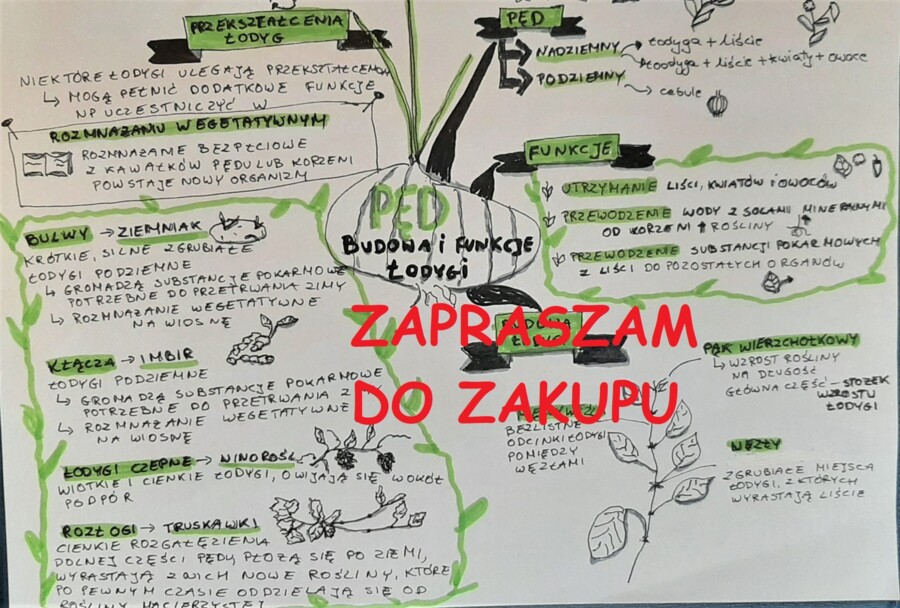 PRZEKSZTAŁCENIA
ŁODYG
NIEKTÓRE ŁODYGI ULEGAJĄ PRZEKSZTAŁCENIOM
↳ MOGĄ PEŁNIĆ DODATKOWE FUNKCJE
NP UCZESTNICZYĆ W
ROZMNAŻANIU WEGETATYWNYM
ROZMNAŻANIE BEZPŁCIOWE
Z KAWAŁKÓW PĘDU LUB KORZENI
POWSTAJE NOWY ORGANIZM
BULWY → ZIEMNIAK
KRÓTKIE, SILNE ZGRUBIAŁE
ŁODYGI PODZIEMNE
↳ GROMADZĄ SUBSTANCJE POKARMOWE
POTRZEBNE DO PRZETRWANIA ZIMY
↳ ROZMNAŻANIE WEGETATYWNE
NA WIOSNĘ
KŁĄCZA → IMBIR
ŁODYGI PODZIEMNE
↳ GROMADZĄ SUBSTANCJE POKARMOWE
POTRZEBNE DO PRZETRWANIA
↳ ROZMNAŻANIE WEGETATYWNE
NA WIOSNĘ
ŁODYGI CZEPNE → WINOROŚL
WIOTKIE I CIENKIE ŁODYGI, OWIJAJĄ SIĘ WOKÓŁ
PODPÓR
ROZŁOGI → TRUSKAWKI
CIENKIE ROZGAŁĘZIENIA
DOLNEJ CZĘŚCI PĘDY PŁOŻĄ SIĘ PO ZIEMI,
WYRASTAJĄ Z NICH NOWE ROŚLINY, KTÓRE
PO PEWNYM CZASIE ODDZIELAJĄ SIĘ OD
ROŚLINY MACIERZYSTEJ
PĘD
BUDOWA i FUNKCJE
ŁODYGI
ZAPRASZAM
DO ZAKUPU
PĘD
NADZIEMNY → łodyga + liście
łodyga + liście + kwiaty + owoce
PODZIEMNY → cebule
FUNKCJE
UTRZYMANIE LIŚCI, KWIATÓW i OWOCÓW
PRZEWODZENIE WODY Z SOLAMI MINERALNYMI
OD KORZENI ↑ ROŚLINY
PRZEWODZENIE SUBSTANCJI POKARMOWYCH
Z LIŚCI DO POZOSTAŁYCH ORGANÓW
BUDOWA
PĄK WIERZCHOŁKOWY
↳ WZROST ROŚLINY
NA DŁUGOŚĆ
GŁÓWNA CZĘŚĆ - STOŻEK
WZROSTU
ŁODYGI
BEZLISTNE
ODCINKI ŁODYGI
POMIĘDZY
WĘZŁAMI
WĘZŁY
ZGRUBIAŁE MIEJSCA
ŁODYGI, Z KTÓRYCH
WYRASTAJĄ LIŚCIE